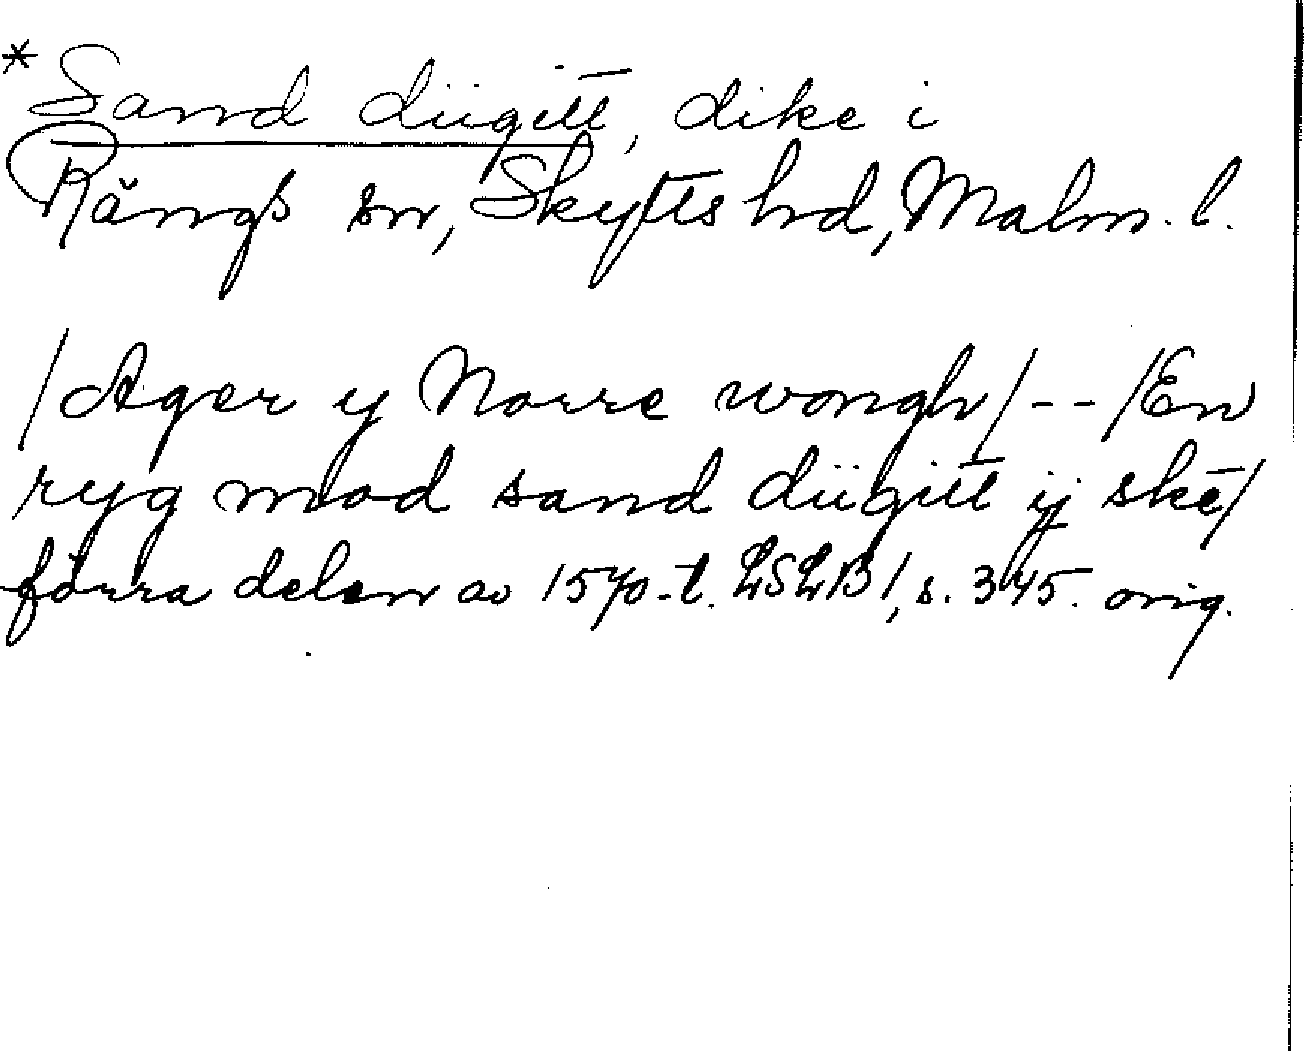 * Sand diigitt, dike i
Rängs sn, Skytts hd, Malm. l.
/Ager y Norre wongh/ -- /En
ryg mod sand diigitt ij ske/
förra delen av 1570-t. LSLB 1, s. 345. orig.